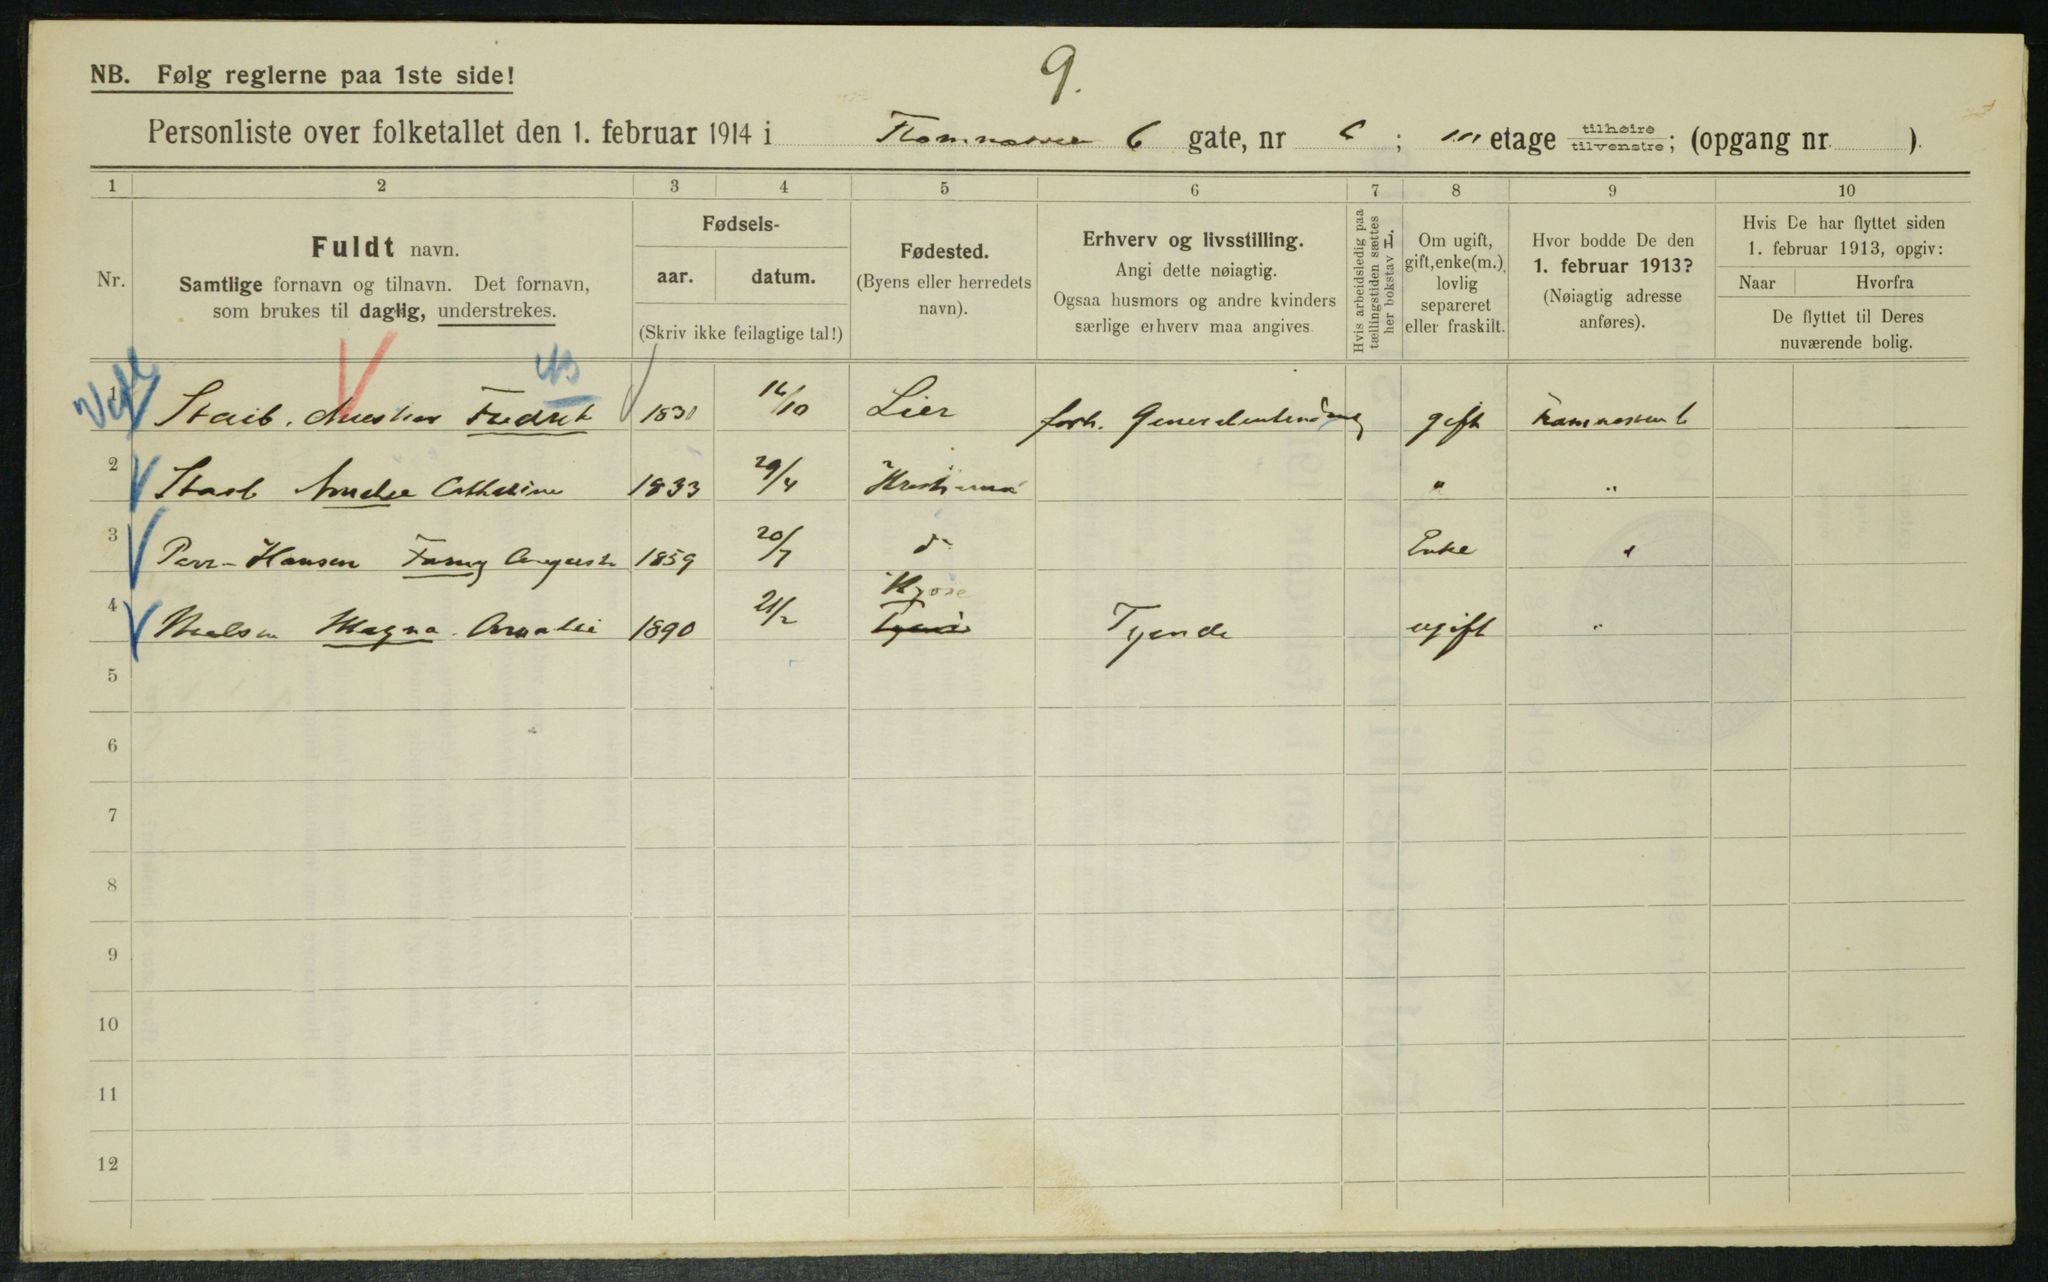 9.
NB. Følg reglerne paa 1ste side!
Personliste over folketallet den 1. februar 1914 i 6 gate, nr 6; III etage tilhøire tilvenstre; (opgang nr. ).
1 2 3 4 5 6 7 8 9 10
Nr.
Fuldt navn.
Samtlige fornavn og tilnavn. Det fornavn,
som brukes til daglig, understrekes.
Fødsels-
aar. datum.
(Skriv ikke feilagtige tal!)
Fødested.
(Byens eller herredets
navn).
Erhverv og livsstilling.
Angi dette nøiagtig.
Ogsaa husmors og andre kvinders
særlige erhverv maa angives.
Hvis arbeidsledig paa
tællingstiden sættes
her bokstav L.
Om ugift,
gift, enke(m.),
lovlig
separeret
eller fraskilt.
Hvor bodde De den
1. februar 1913?
(Nøiagtig adresse
anføres).
Hvis De har flyttet siden
1. februar 1913, opgiv:
Naar Hvorfra
De flyttet til Deres
nuværende bolig.
1 Staib, Fredrik 1830 /10 Lier forh. gift
2 Staib Amalie Cathrine 1833 29/4 Kristiania " "
3 Hansen Fanny Augusta 1859 20/7 do Enke "
4 Nielsen Magna Amalie 1890 21/2 Tyende ugift "
5
6
7
8
9
10
11
12